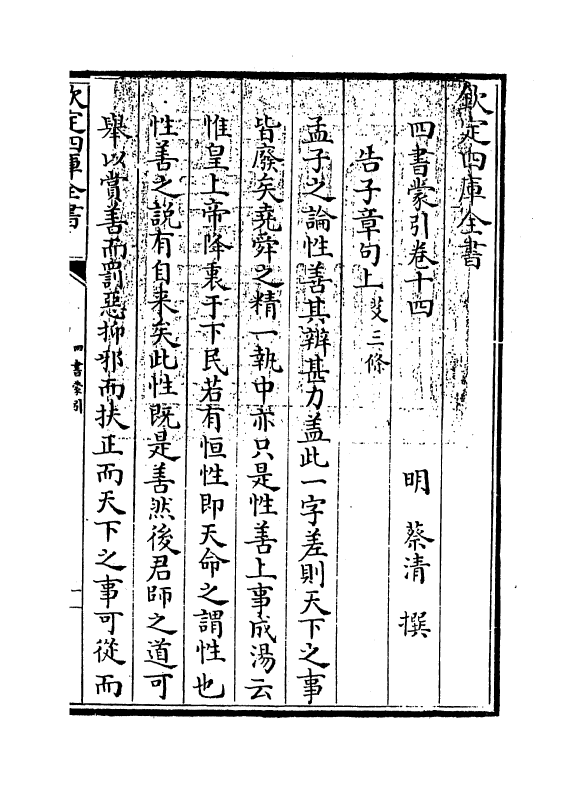 欽定四庫全書
四書蒙引卷十四
明 蔡清 撰
告子章句上 三條
孟子之論性善其辨甚力盖此一字差則天下之事
皆廢矣堯舜之精一執中亦只是性善上事成湯云
惟皇上帝降衷于下民若有恒性即天命之謂性也
性善之說有自来矣此性既是善然後君師之道可
舉以賞善而罰惡抑邪而扶正而天下之事可從而
欽定四庫全書
四書蒙引
一